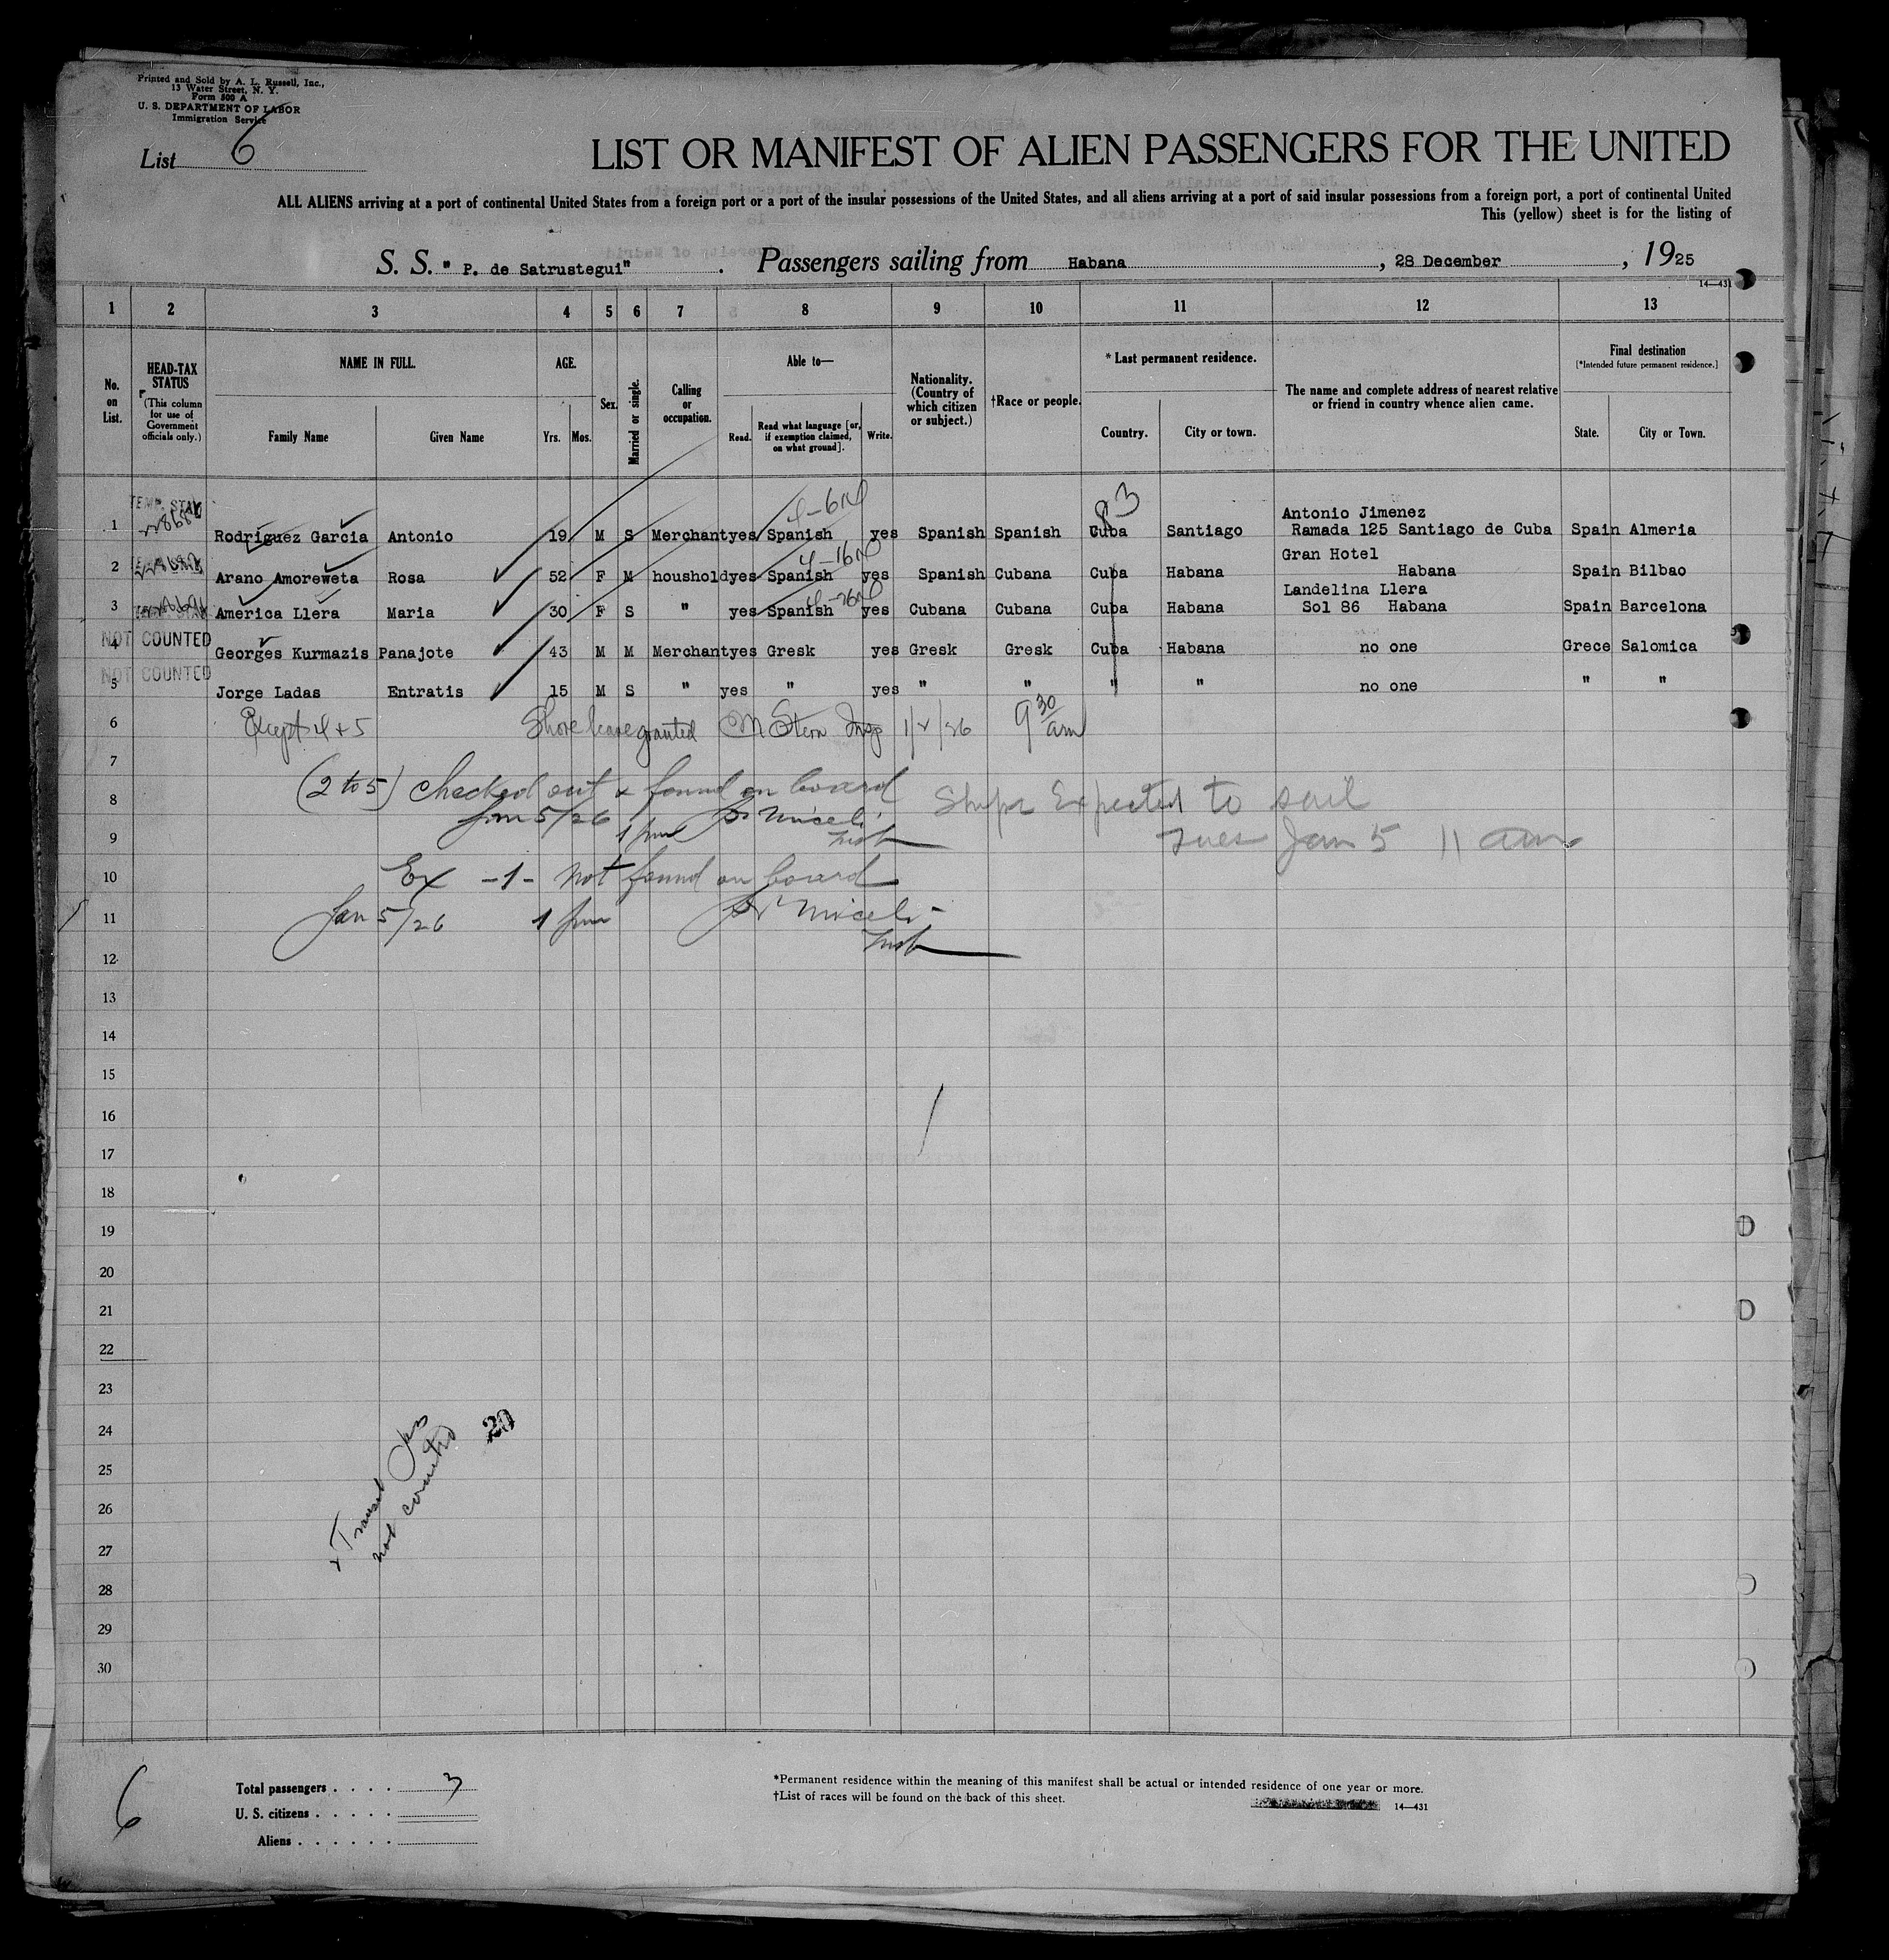 Printed and Sold by A. L. Russell, Inc.,
13 Water Street, N. Y.
Form 500 A
U. S. DEPARTMENT OF LABOR
Immigration Service
List 6
LIST OR MANIFEST OF ALIEN PASSENGERS FOR THE UNITED
ALL ALIENS arriving at a port of continental United States from a foreign port or a port of the insular possessions of the United States, and all aliens arriving at a port of said insular possessions from a foreign port, a port of continental United
This (yellow) sheet is for the listing of
S. S. " P. de Satrustegui" . Passengers sailing from Habana , 28 December , 1925
14—431
1 2 3 4 5 6 7 8 9 10 11 12 13
No. on List.
HEAD-TAX STATUS
(This column for use of Government officials only.)
NAME IN FULL.
Family Name Given Name
AGE.
Yrs. Mos.
Sex.
Married or single.
Calling or occupation.
Able to—
Read. Read what language [or, if exemption claimed, on what ground]. Write.
Nationality. (Country of which citizen or subject.)
†Race or people.
* Last permanent residence.
Country. City or town.
The name and complete address of nearest relative or friend in country whence alien came.
Final destination
[*Intended future permanent residence.]
State. City or Town.
93
TEMP. STAY
Antonio Jimenez
1 Rodriguez Garcia Antonio 19 M S Merchant yes Spanish yes Spanish Spanish Cuba Santiago Ramada 125 Santiago de Cuba Spain Almeria
Gran Hotel
2 Arano Amoreweta Rosa 52 F M houshold yes Spanish yes Spanish Cubana Cuba Habana Habana Spain Bilbao
Landelina Llera
3 America Llera Maria 30 F S " yes Spanish yes Cubana Cubana Cuba Habana Sol 86 Habana Spain Barcelona
NOT COUNTED
4 Georges Kurmazis Panajote 43 M M Merchant yes Gresk yes Gresk Gresk Cuba Habana no one Grece Salomica
NOT COUNTED
5 Jorge Ladas Entratis 15 M S " yes " yes " " " " no one " "
6 Except 4 + 5 Shore leave granted M Stern Insp 1/2/26 9 30 am
7
(2 to 5) Checked out & found on board
8 Ships Expected to sail
Jan 5/26 1 pm
9 Tues Jan 5 11 am
10 Ex -1- not found on board
11 Jan 5/26 1 pm
12
13
14
15
16
17
18
19
20
21
22
23
24
25
26
27
28
29
30
20
Transit
not counted
6
Total passengers . . . . 3
U. S. citizens . . . . .
Aliens . . . . . .
*Permanent residence within the meaning of this manifest shall be actual or intended residence of one year or more.
†List of races will be found on the back of this sheet.
14—431